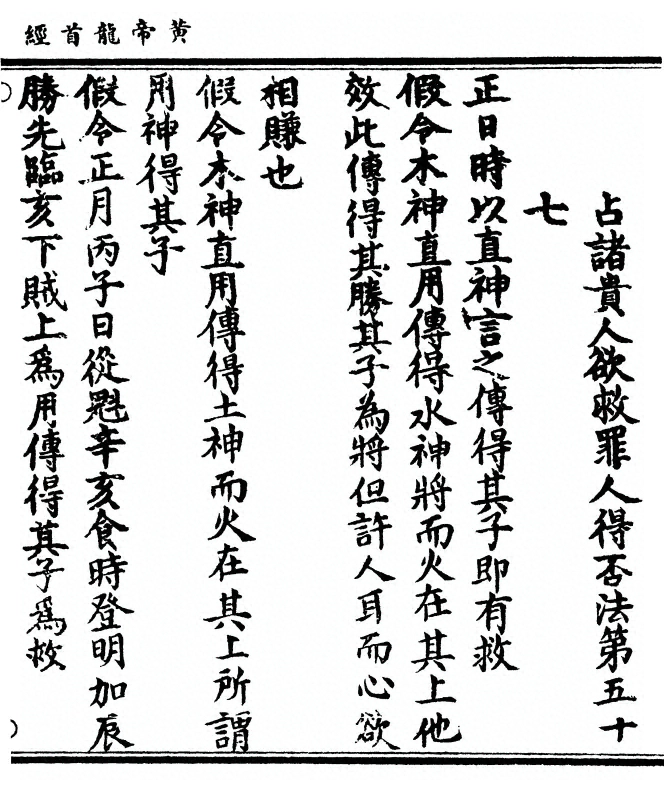 黄帝龍首經
占諸貴人欲救罪人得否法第五十
七
正日時以直神言之傳得其子即有救
假令木神直用傳得水神將而火在其上他
效此傳得其勝其子為將但許人耳而心欲
相賺也
假令木神直用傳得土神而火在其上所謂
用神得其子
假令正月丙子日從魁辛亥食時登明加辰
勝先臨亥下賊上爲用傳得其子爲救